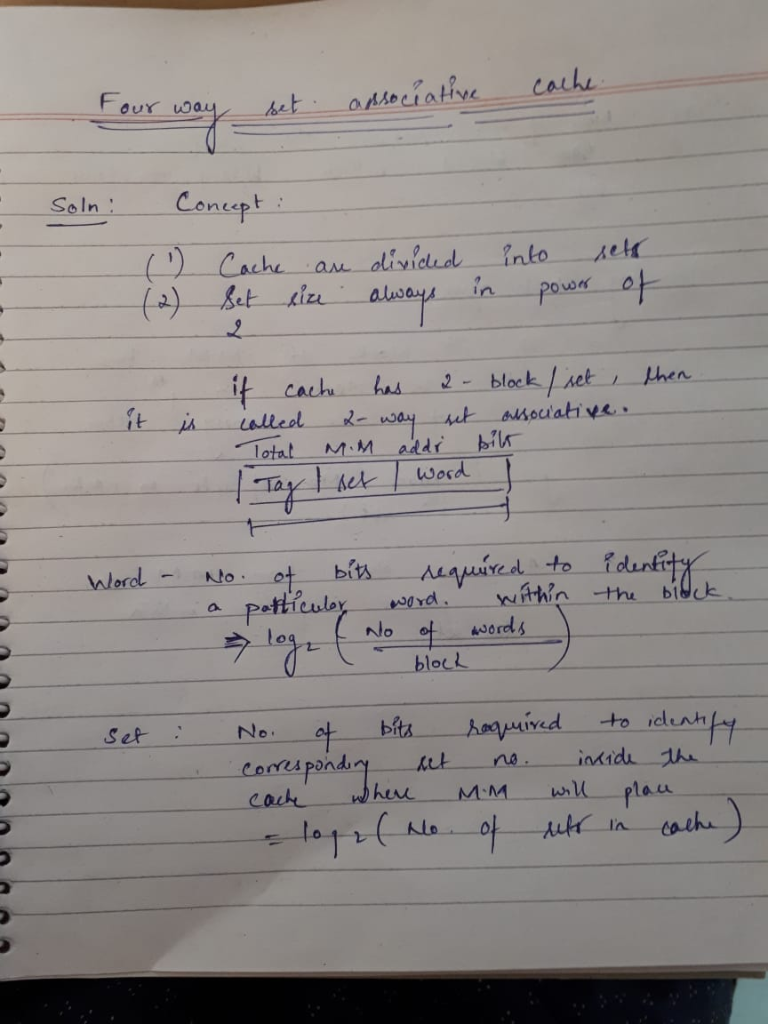 Four way set associative cache.
Soln: Concept:
(1) Cache are divided into sets
(2) Set size always in power of
2
if cache has 2-block/set, then
it is called 2-way set associative.
Total M.M addr bits
Tag | set | word
Word - No. of bits required to identify
a particular word. within the block.
⇒ log₂ (No of words / block)
Set : No. of bits required to identify
corresponding set no. inside the
cache where M.M will place
= log₂ (No. of sets in cache)